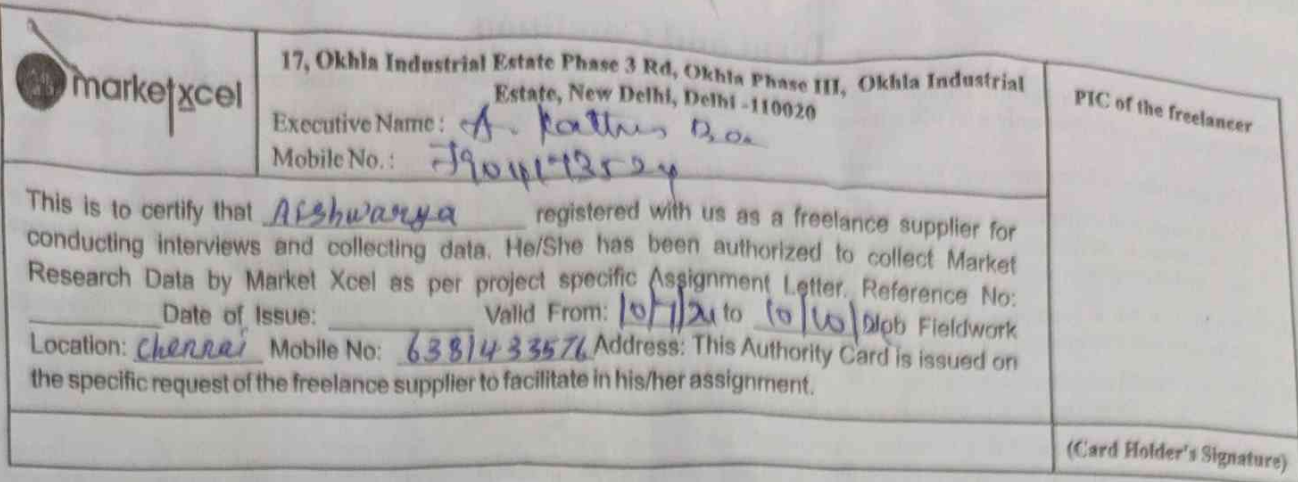 marketxcel
17, Okhla Industrial Estate Phase 3 Rd, Okhla Phase III, Okhla Industrial
Estate, New Delhi, Delhi -110020
Executive Name: A.
Mobile No.:
PIC of the freelancer
This is to certify that Aishwarya registered with us as a freelance supplier for
conducting interviews and collecting data. He/She has been authorized to collect Market
Research Data by Market Xcel as per project specific Assignment Letter. Reference No:
Date of Issue: Valid From: 10/7/21 to 10/10/ Job Fieldwork
Location: Chennai Mobile No: 6381433576 Address: This Authority Card is issued on
the specific request of the freelance supplier to facilitate in his/her assignment.
(Card Holder's Signature)